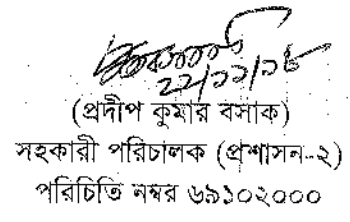 ২২/১১/১৮
(প্রদীপ কুমার বসাক)
সহকারী পরিচালক (প্রশাসন-২)
পরিচিতি নম্বর ৬৯১০২০০০